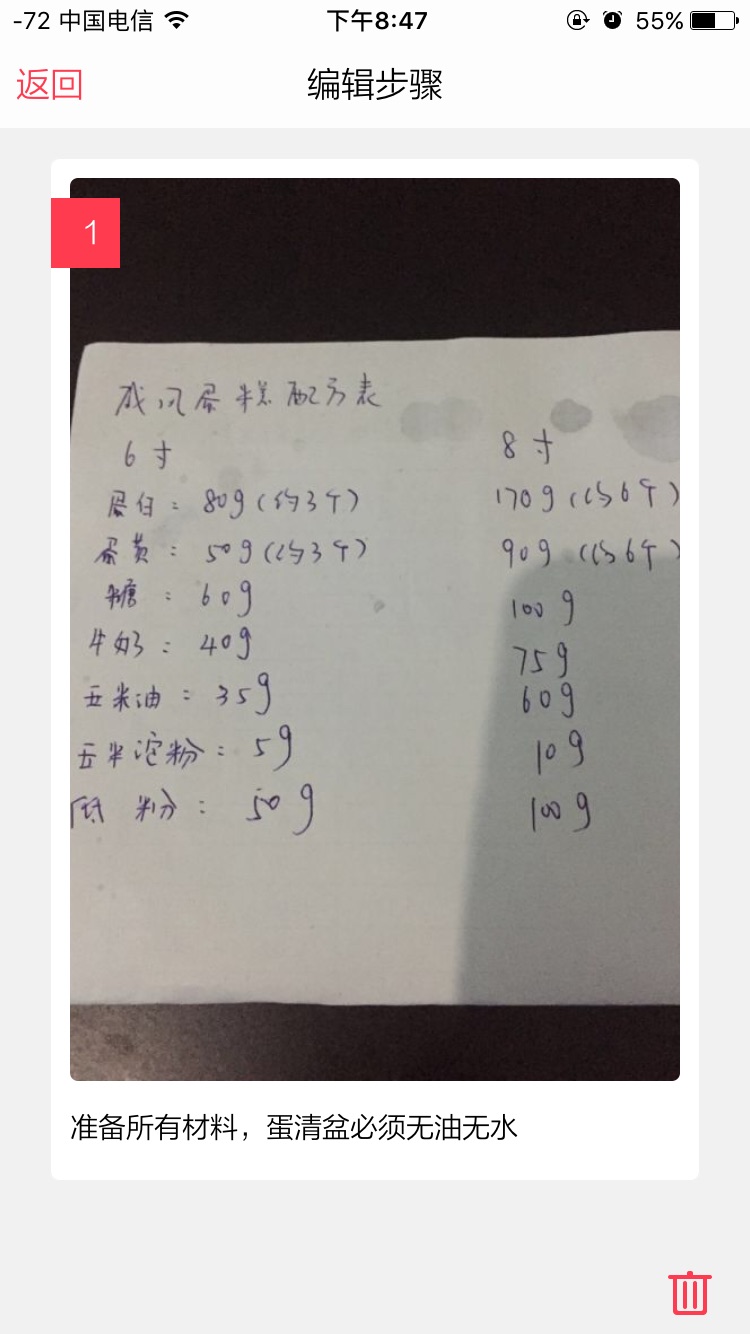 -72 中国电信 下午8:47 55%
返回 编辑步骤
1
戚风蛋糕配方表
6寸 8寸
蛋白：80g（约3个） 170g（约6个）
蛋黄：50g（约3个） 90g（约6个）
糖：60g 100g
牛奶：40g 75g
玉米油：35g 60g
玉米淀粉：5g 10g
低粉：50g 100g
准备所有材料，蛋清盆必须无油无水